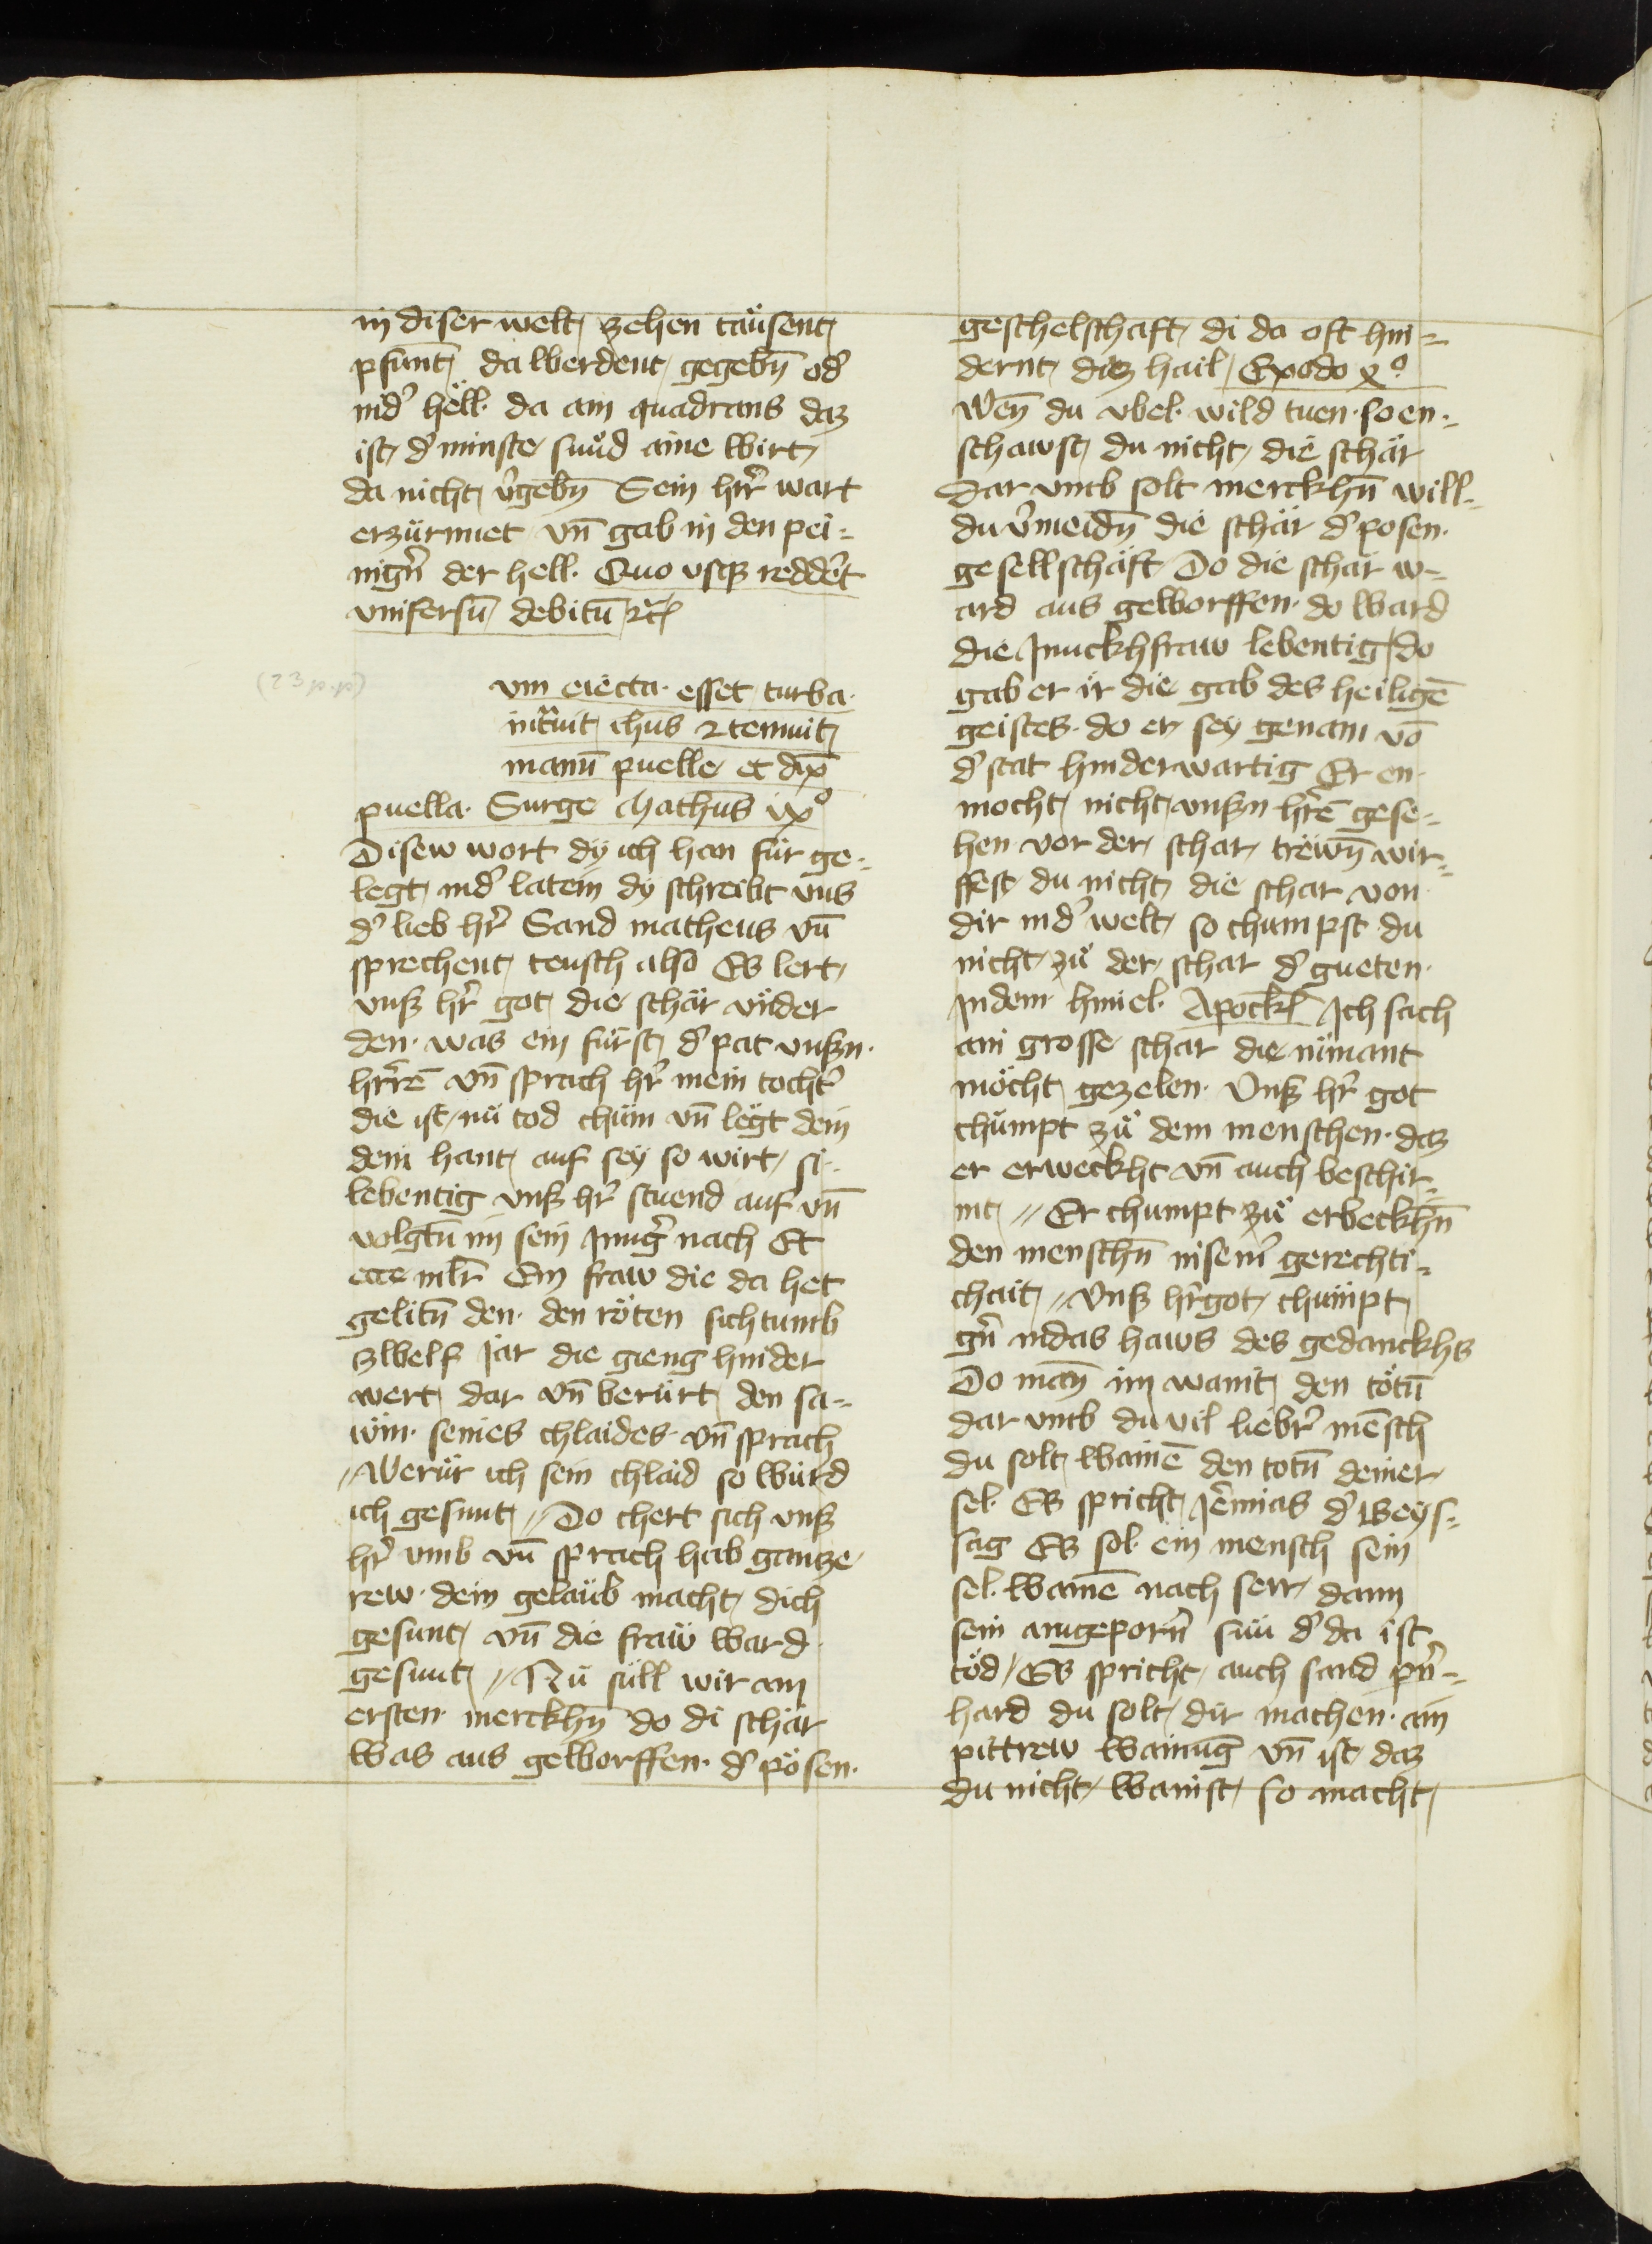 in diser welt zehen taüsent
pfunt da werdent gegebn̄ od̓
ind̓ hell da ain quadrans daz
ist d̓ minste sund aine wirt
da nicht v̓gebn̄ Sein hrr̓ wart
erzürnnet vn̄ gab in den pei=
nign̓ der hell Quo vsqz redd̓et
vnifersū debitū ⁊c̄
(23 p. p)
vm eiecta esset turba
intᵃuit ihūs ⁊ tenuit
manū puelle et dix̄
puella Surge Matheūs ixͦ
Disew wort dÿ ich han für ge=
legt ind̓ latein dÿ schreibt vns
d̓ lieb hr̓ Sand matheus vn̄
sprechent teusch also Es lert
vnsz hr̓ got die schär vnder
den was ein fürst d̓ pat vnszn
hrrē vn̄ sprach hr̓ mein tocht̓
die ist nü tod chüm vn̄ legt dein
dein hant auf seÿ so wirt si
lebentig vnsz hr̓ stuend auf vn̄
volgtn̄ im sein Jung̓ nach Et
ecce mlr̄ Ein fraw die da het
gelitn̄ den den röten sichtumb
zwelf Jar die gieng hinder
wert dar vn̄ berürt den sa=
wm seines chlaides vn̄ sprach
Merür ich sein chlaid so würd
ich gesunt // Do chert sich vnsz
hr̓ vmb vn̄ sprach hab gantze
rew dein gelaüb macht dich
gesunt vn̄ die fraẅ ward
gesunt // Nü süll wir am
ersten merckhn̄ do di schär
was aus geworffen d̓ pösen
geschelschaft di da oft hin=
dernt diez hail Exodo xͦ
Wen̄ du vbel wild tuen so en=
schawst du nicht die schär
Dar vmb solt merckhn̄ will=
du v̓meidn̄ die schär d̓ posen
gesellschäft Do die schar w=
ard aus geworffen do ward
die Junckhfraw lebentig do
gab er ir die gab des heiligē
geistes do er seÿ genam vō
d̓ stat hinderwartig Er en
mocht nicht vnszn hrē gese=
hen vor der schar trewn̄ wir=
ffest du nicht die schar von
dir ind̓ welt so chumpst du
nicht zü der schar d̓ gueten
Jndem himel Apockl̄ Jch sach
ain grosse schar die nimant
möcht gezelen Vnsz hr̓ got
chümpt zü dem menschen daz
er erweckht vn̄ auch beschir=
mt // Er chumpt zü erbeckhn̄
den menschn̄ in seim̓ gerechti=
chait // Vnsz hr̓got chümpt
gn̓ in das haws des gedanckhs
Do man̄ im wanit den tötn̄
dar vmb du vil liebr̓ mēsch
du solt wainē den totn̄ deiner
sel Es spricht Jēmias d̓ weÿs=
sag Es sol ein mensch sein
sel wainē nach serr dann
sein aingeporn̓ sün d̓ da ist
töd / Es spricht auch sand pn̓=
hard du solt dir machen ain
pittrew wainūg vn̄ ist daz
du nicht wainst so macht